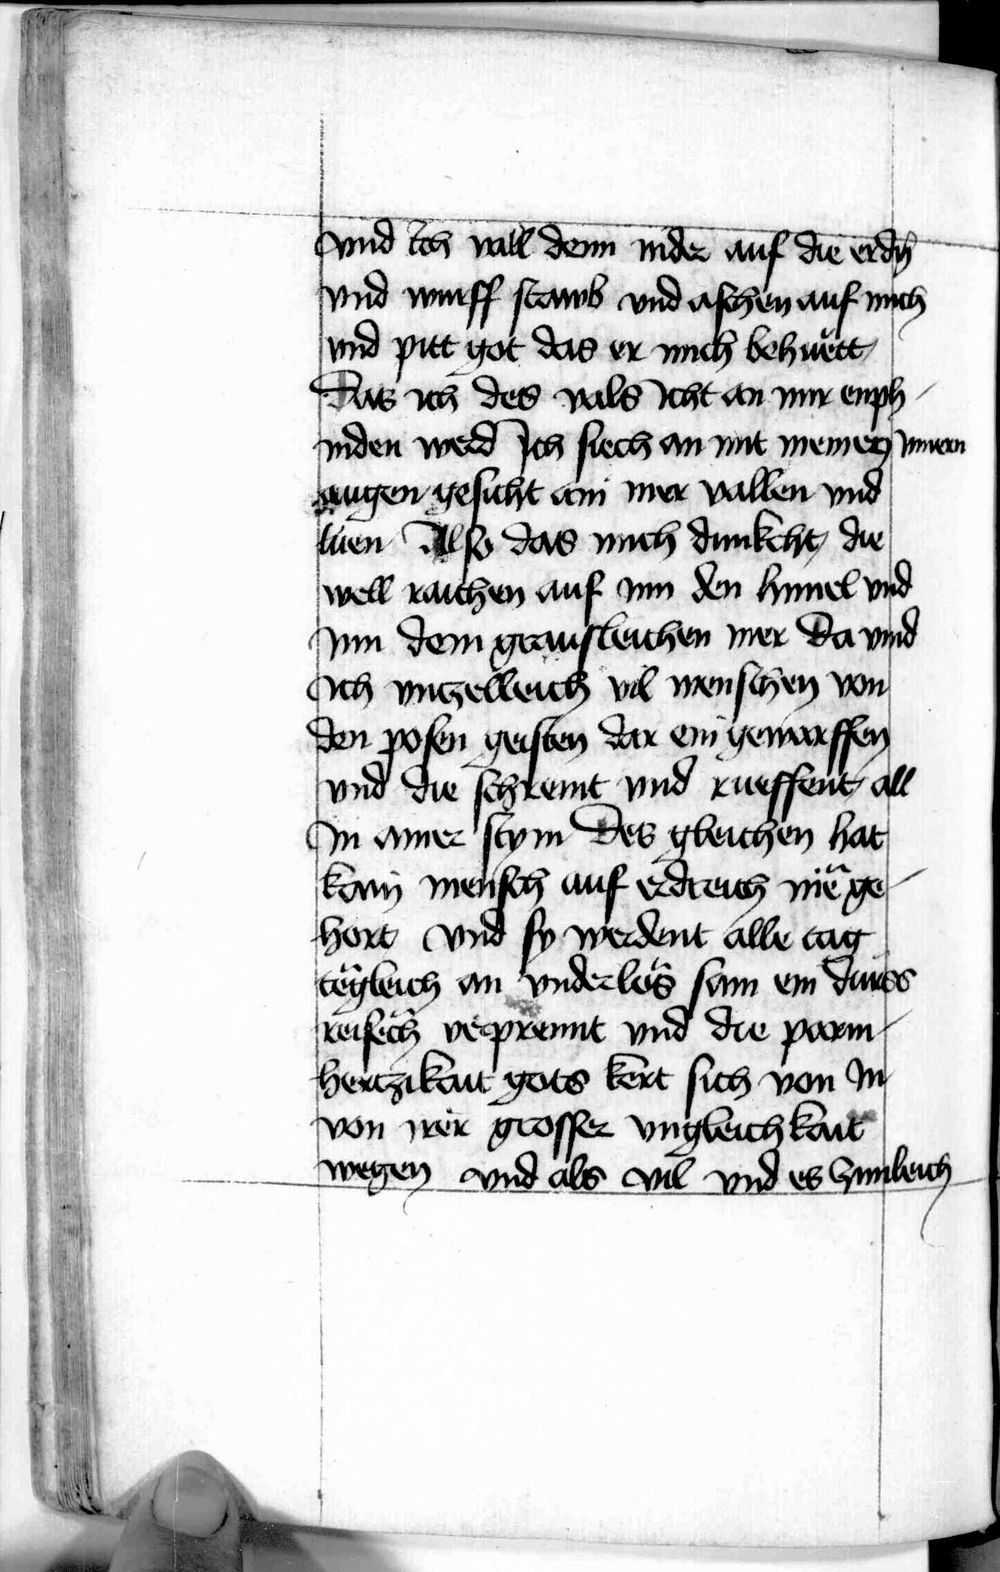 vnd Ich vall denn nider auf die erdn̄
vnd wurff stawb vnd aschen auf mich
vnd pitt got das er mich behuett
Das ich des vals Icht an mir enph
inden werd Ich siech an mit meinen Innern
augen gesicht ain mer vallen vnd
Also das mich dunkcht die
well raichen auf inn den himel vnd
inn dem grausleichen mer Da vind
Ich vnczelleich vil menschen von
den posen geisten dar ein geworffen
vnd die schreint vnd rueffent all
In ainer stym Des gleichen hat
kain mensch auf erdreich nie ge
hort vnd sy werdent alle tag
tegleich an vnderlos sam ein durss
reisech verprennt vnd die parm
hertzikait gots kert sich von In
von irer grosser vngleichkait
wegen vnd als vil vnd es